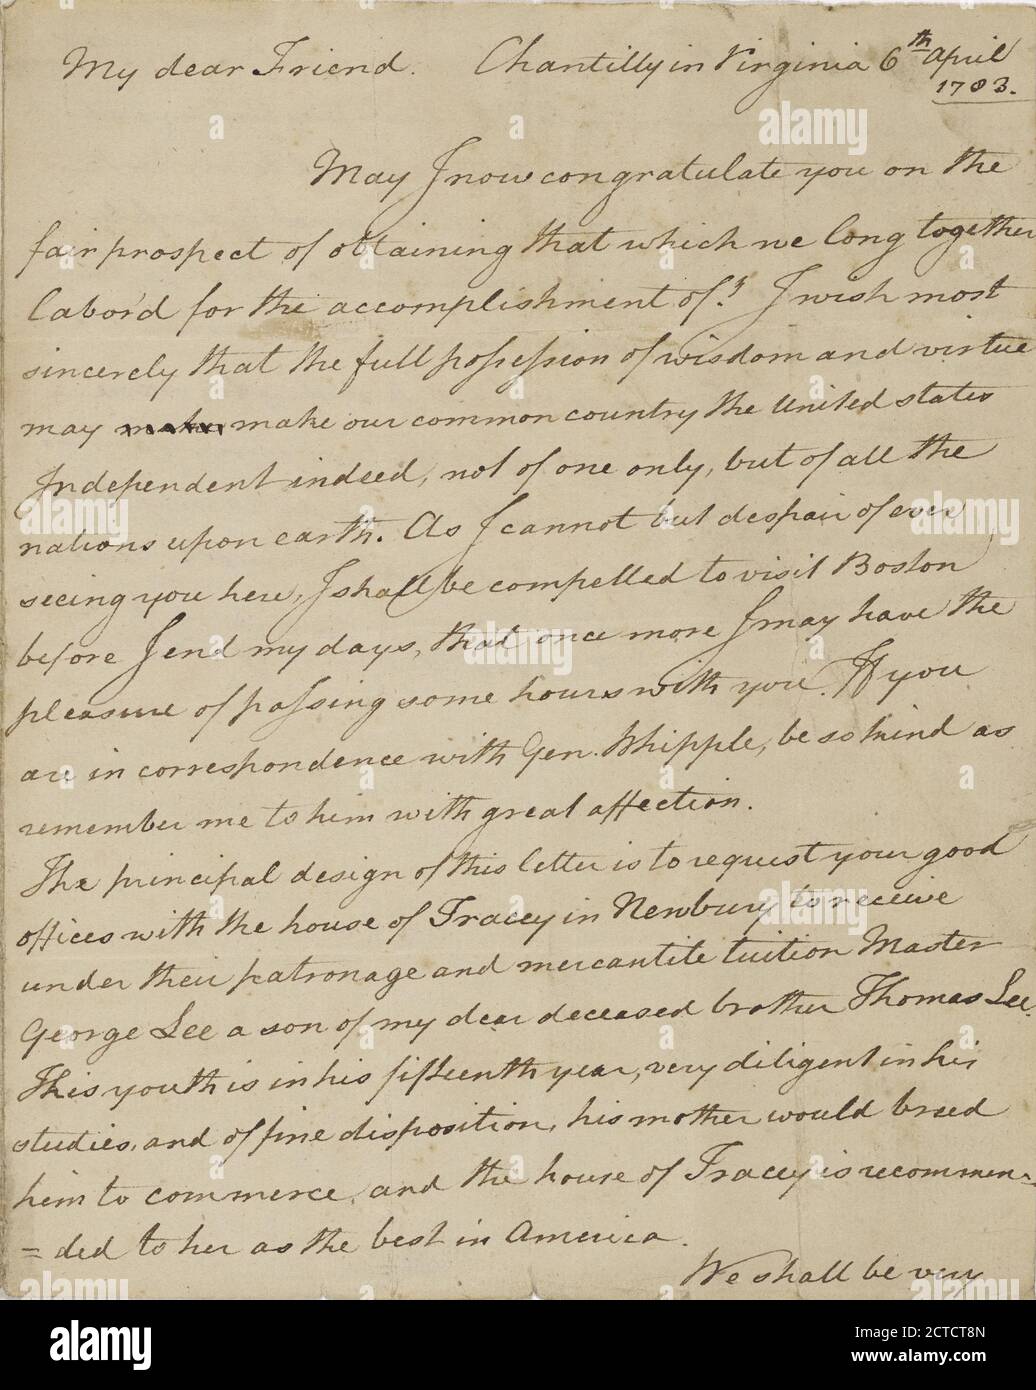 My dear Friend. Chantilly in Virginia 6th April
1783.
May I now congratulate you on the
fair prospect of obtaining that which we long together
labor'd for the accomplishment of? I wish most
sincerely that the full possession of wisdom and virtue
may make our common country the United states
Independent indeed, not of one only, but of all the
nations upon earth. As I cannot but despair of ever
seeing you here, I shall be compelled to visit Boston
before I end my days, that once more I may have the
pleasure of passing some hours with you. If you
are in correspondence with Gen. Whipple, be so kind as
remember me to him with great affection.
The principal design of this letter is to request your good
offices with the house of Tracey in Newbury to receive
under their patronage and mercantile tuition Master
George Lee a son of my dear deceased brother Thomas Lee.
This youth is in his fifteenth year, very diligent in his
studies, and of fine disposition, his mother would breed
him to commerce, and the house of Tracey is recommen=
=ded to her as the best in America.
We shall be very
alamy
Image ID: 2CTCT8N
www.alamy.com